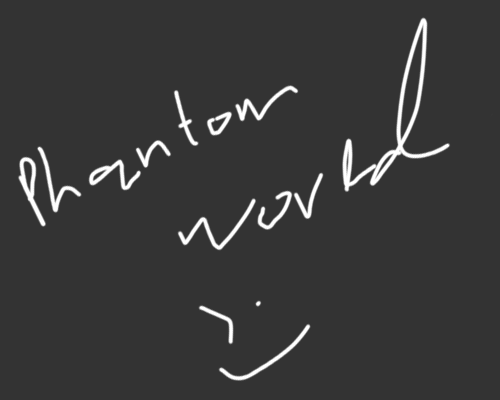 Phantom
World